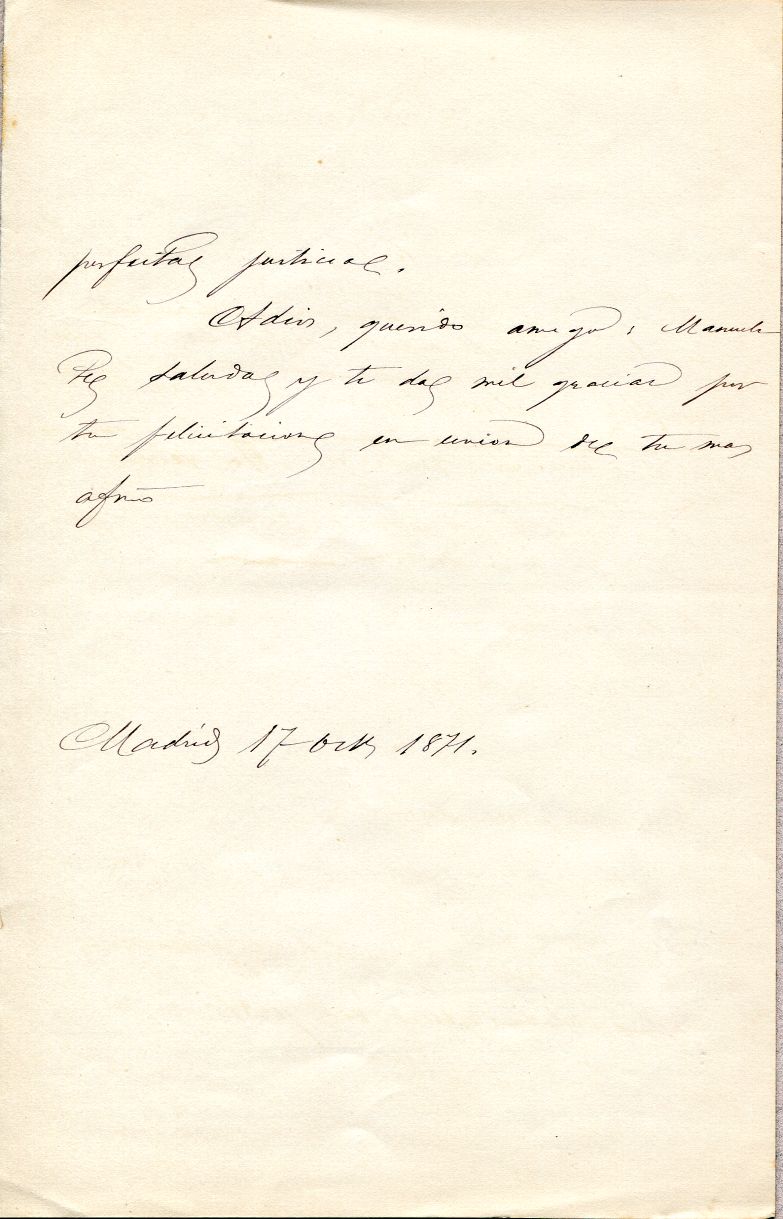 perfecta justicia.
Adios, querido amigo; Manuela
te saluda y te da mil gracias por
tu felicitacion en union de tu mas
afmo
Madrid 17 Octe 1871.